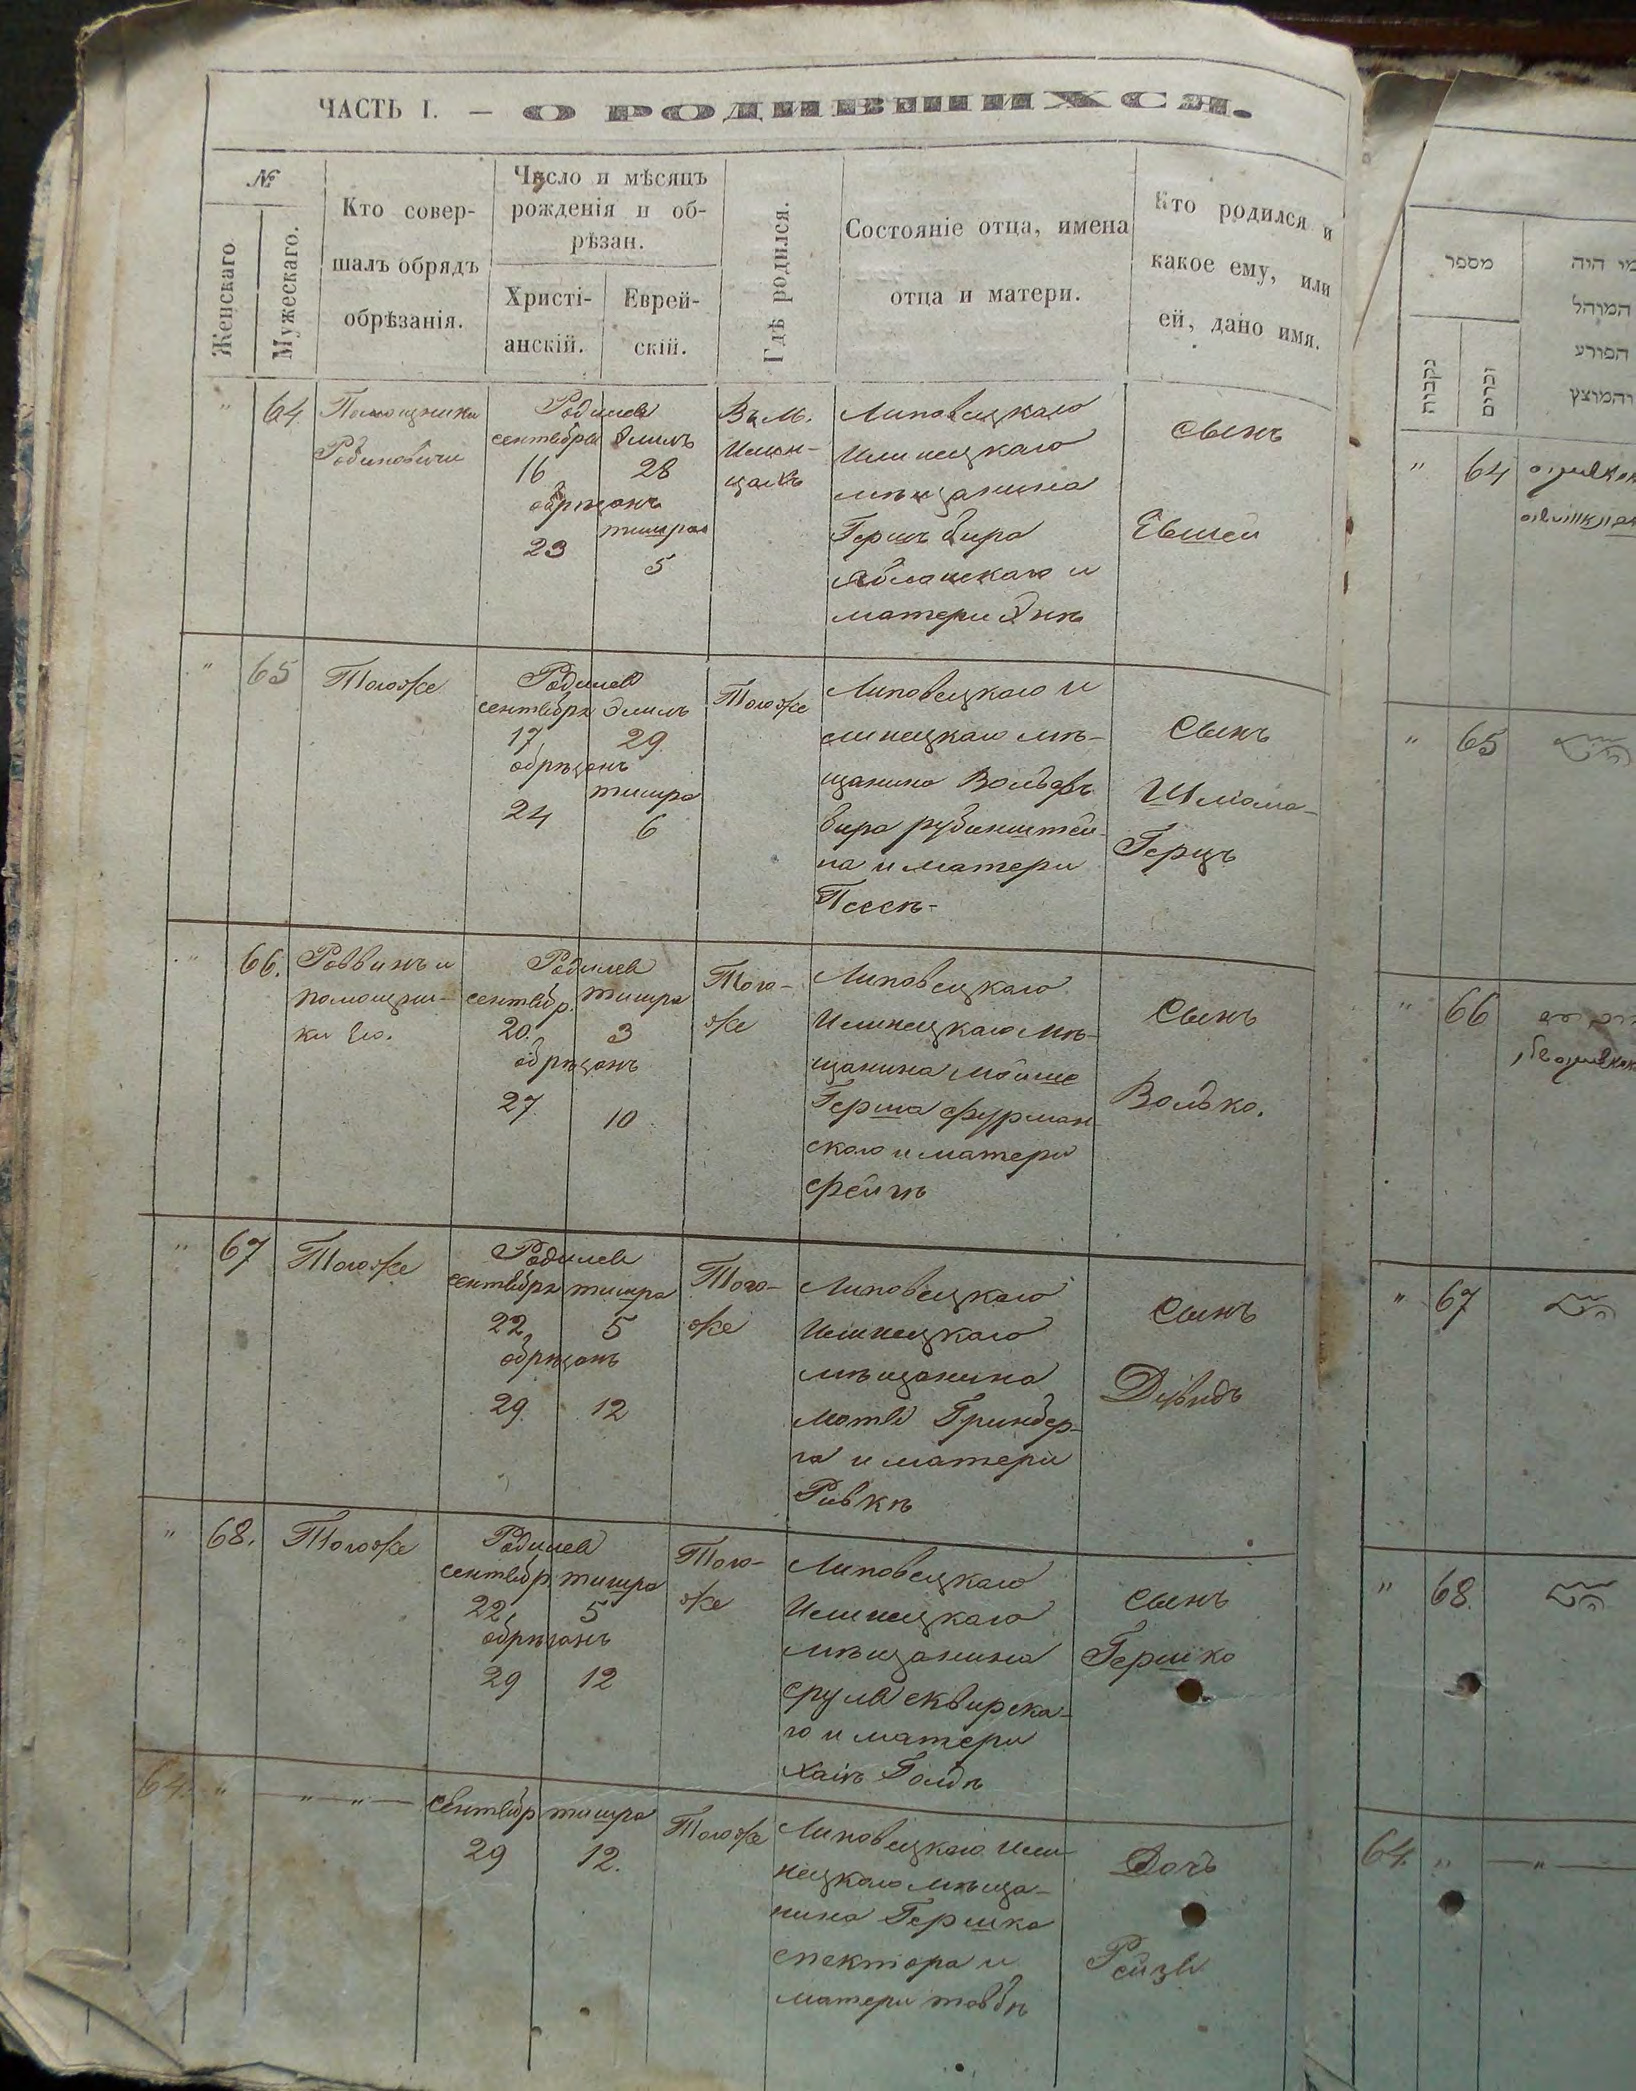 ЧАСТЬ I. — О РОДИВШИХСЯ.
№
Женскаго
Мужескаго.
Кто совер-
шалъ обрядъ
обрѣзанія.
Число и мѣсяцъ
рожденія и об-
рѣзан.
Христі-
анскій.
Еврей-
скій.
Гдѣ родился.
Состояніе отца, имена
отца и матери.
Кто родился и
какое ему, или
ей, дано имя.
" 64
Помощники
Рабиновичи
Родился
сентября Элилъ
16 28
обрѣзанъ
тишра
23 5
Въ м.
Илин-
цахъ
Липовецкаго
Илинецкаго
мѣщанина
Гершъ бира
матери Энѣ
сынъ
Евшей
" 65
Тогоже
Родился
сентября Элилъ
17 29
обрѣзанъ
тишра
24 6
Тогоже
Липовецкаго и
линецкаго мѣ-
щанина Вольфъ
бира рубинштей-
на и матери
Песѣ-
Сынъ
Шлома-
Герцъ
" 66.
Раввинъ и
помощни-
ки его.
Родился
сентябр. тишра
20. 3
обрѣзанъ
27. 10
Того-
же
Липовецкаго
Илинецкаго мѣ-
щанина Мойше
Герша фурман
скаго и матери
Фейгѣ
Сынъ
Волько.
" 67
Тогоже
Родился
сентября тишра
22, 5
обрѣзанъ
29. 12
Того-
же
Липовецкаго
Илинецкаго
мѣщанина
Гринбер-
га и матери
Ривкѣ
Сынъ
Дувидъ
" 68.
Тогоже
Родился
сентябр тишра
22, 5
обрѣзанъ
29 12
Того-
же
Липовецкаго
Илинецкаго
мѣщанина
срула сквирска-
го и матери
Хаіѣ Голдѣ
Сынъ
Гершко
64. " — " — " —
сентябр тишра
29 12.
Тогоже
Липовецкаго Или
нецкаго мѣща-
нина Гершка
спектора и
матери товбѣ
Дочь
Рейзя
מספר
נקבות
זכרים
מי היה
המוהל
הפורע
והמוצץ
" 64
" 65
" 66
" 67
" 68.
64. " — " —